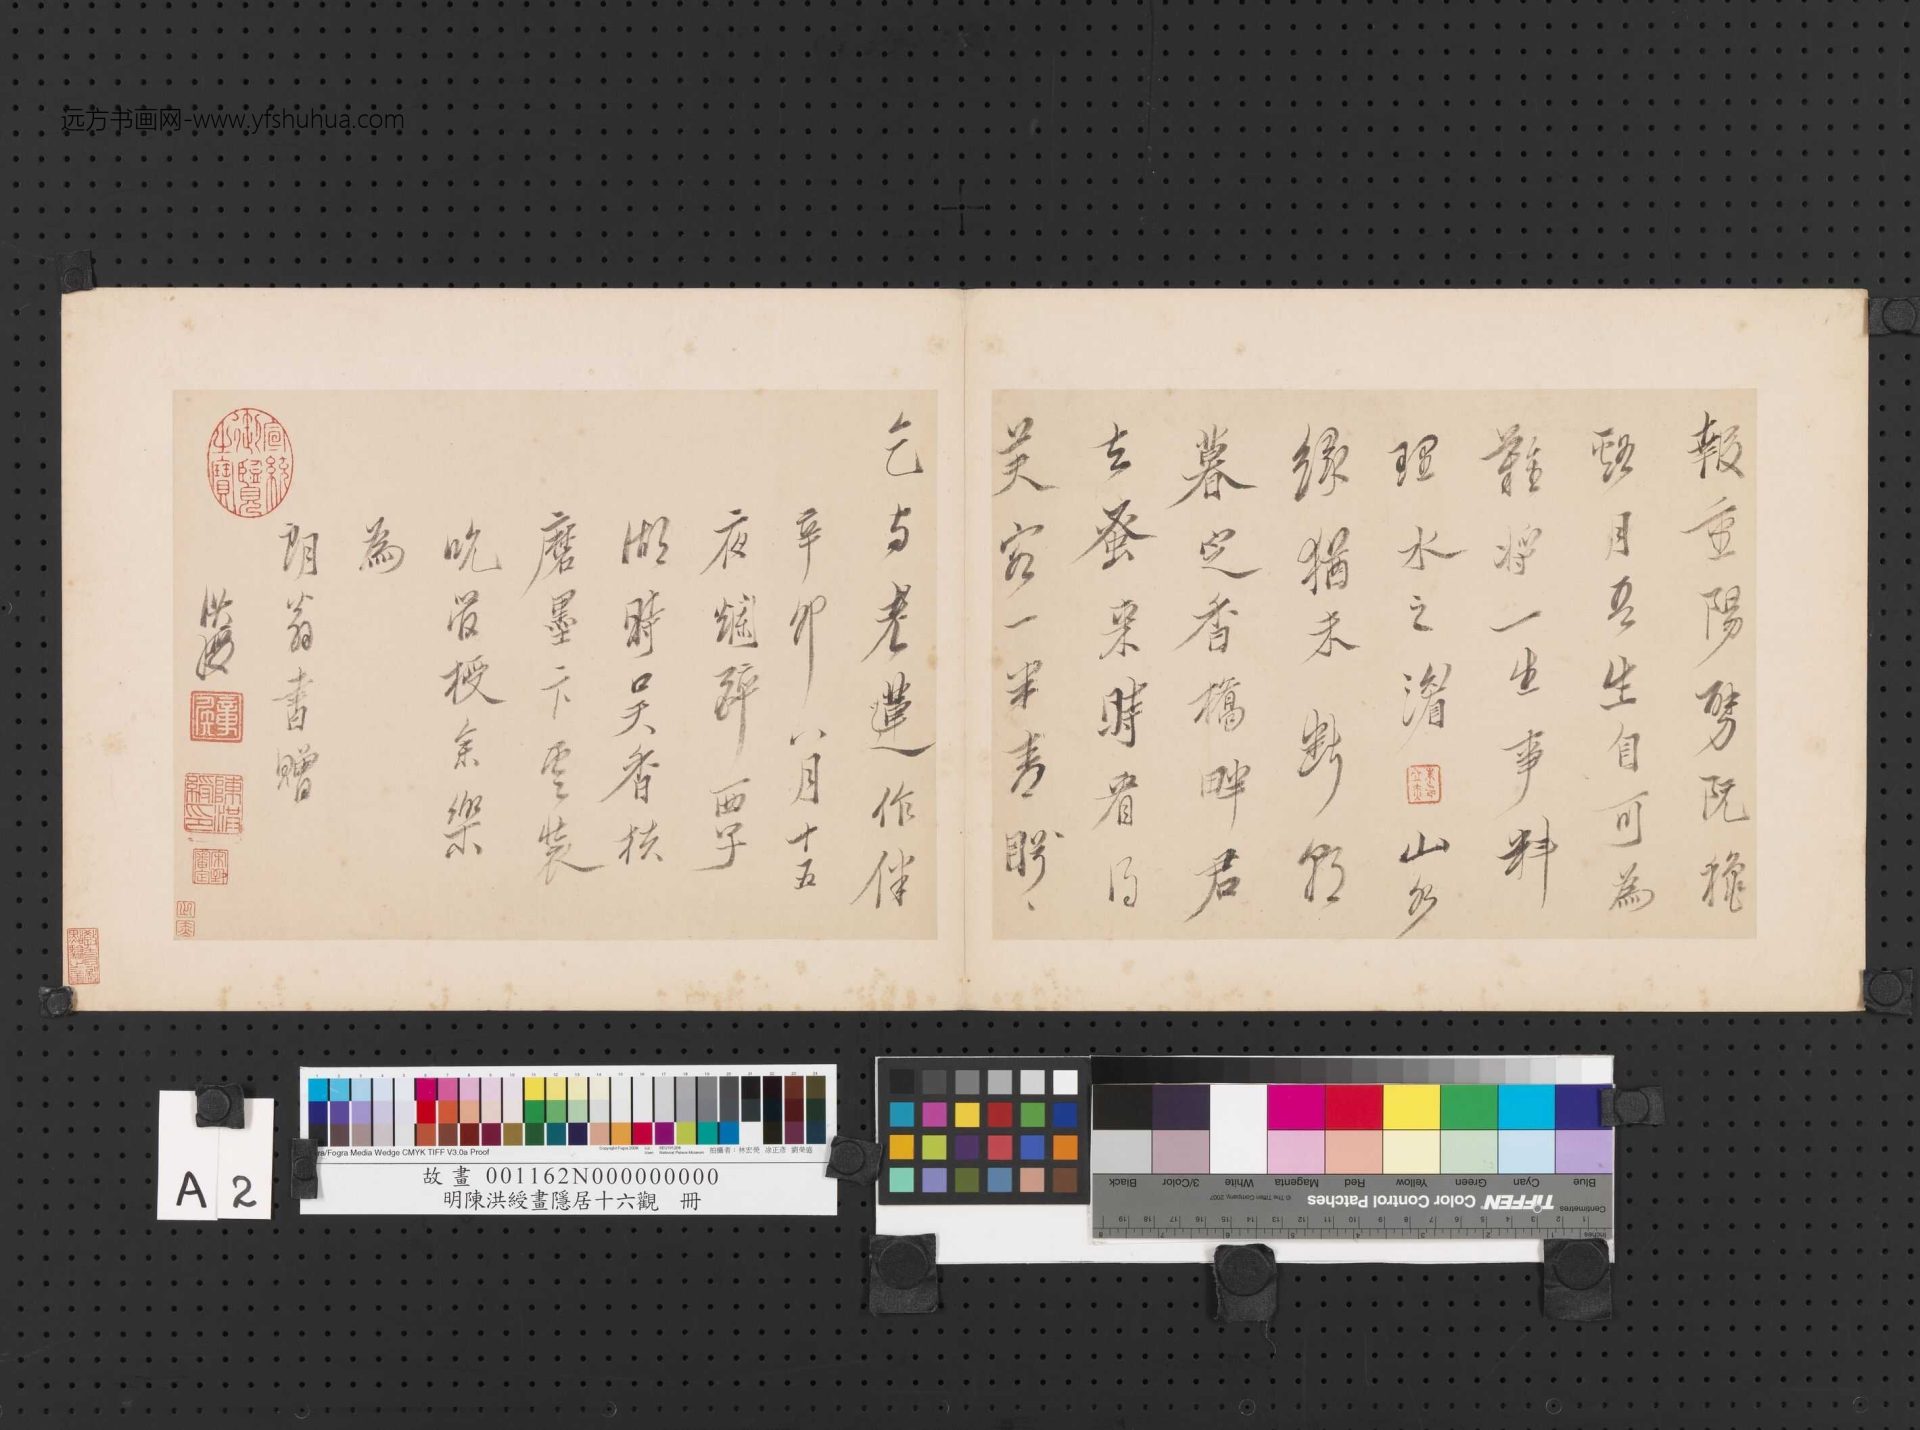 远方书画网-www.yfshuhua.com
報重陽劈阮
月吾生自可為
難將一生事料
理水之湄 山水
緣猶未斷郤
暮定香橋畔君
去蚤来時看得
芙容一半青
乞与老蓮作伴
辛卯八月十五
夜爛醉西子
湖時吴香扶
磨墨卞雲裝
吮管授余樂
為
朗翁書贈
洪綬
陳洪綬印
A 2
Fogra Media Wedge CMYK TIFF V3.0a Proof
故畫 001162N000000000
明陳洪綬畫隱居十六觀 冊
Blue Cyan Green Yellow Red Magenta White 3/Color Black
TIFFEN Color Control Patches
© The Tiffen Company, 2007
Centimetres
Inches